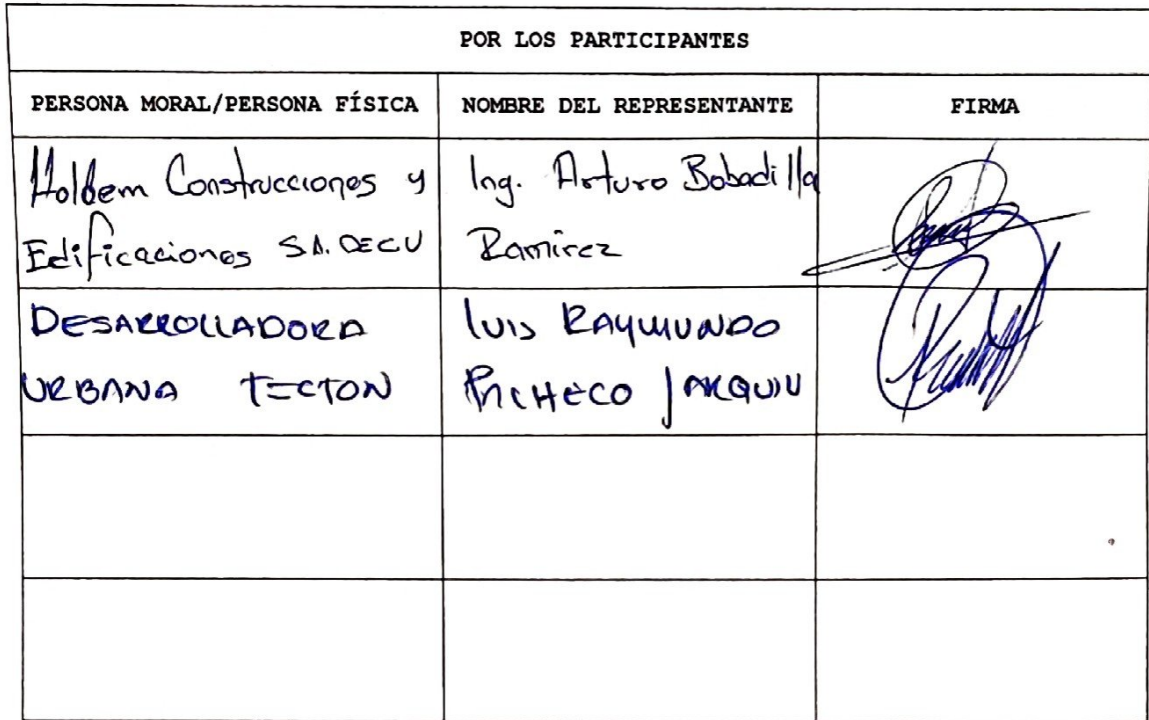 POR LOS PARTICIPANTES
PERSONA MORAL/PERSONA FÍSICA
NOMBRE DEL REPRESENTANTE
FIRMA
Holdem Construcciones y
Edificaciones S.A. DECV
Ing. Arturo Bobadilla
Ramirez
DESARROLLADORA
URBANA TECTON
LUIS RAYMUNDO
PACHECO JARQUIN